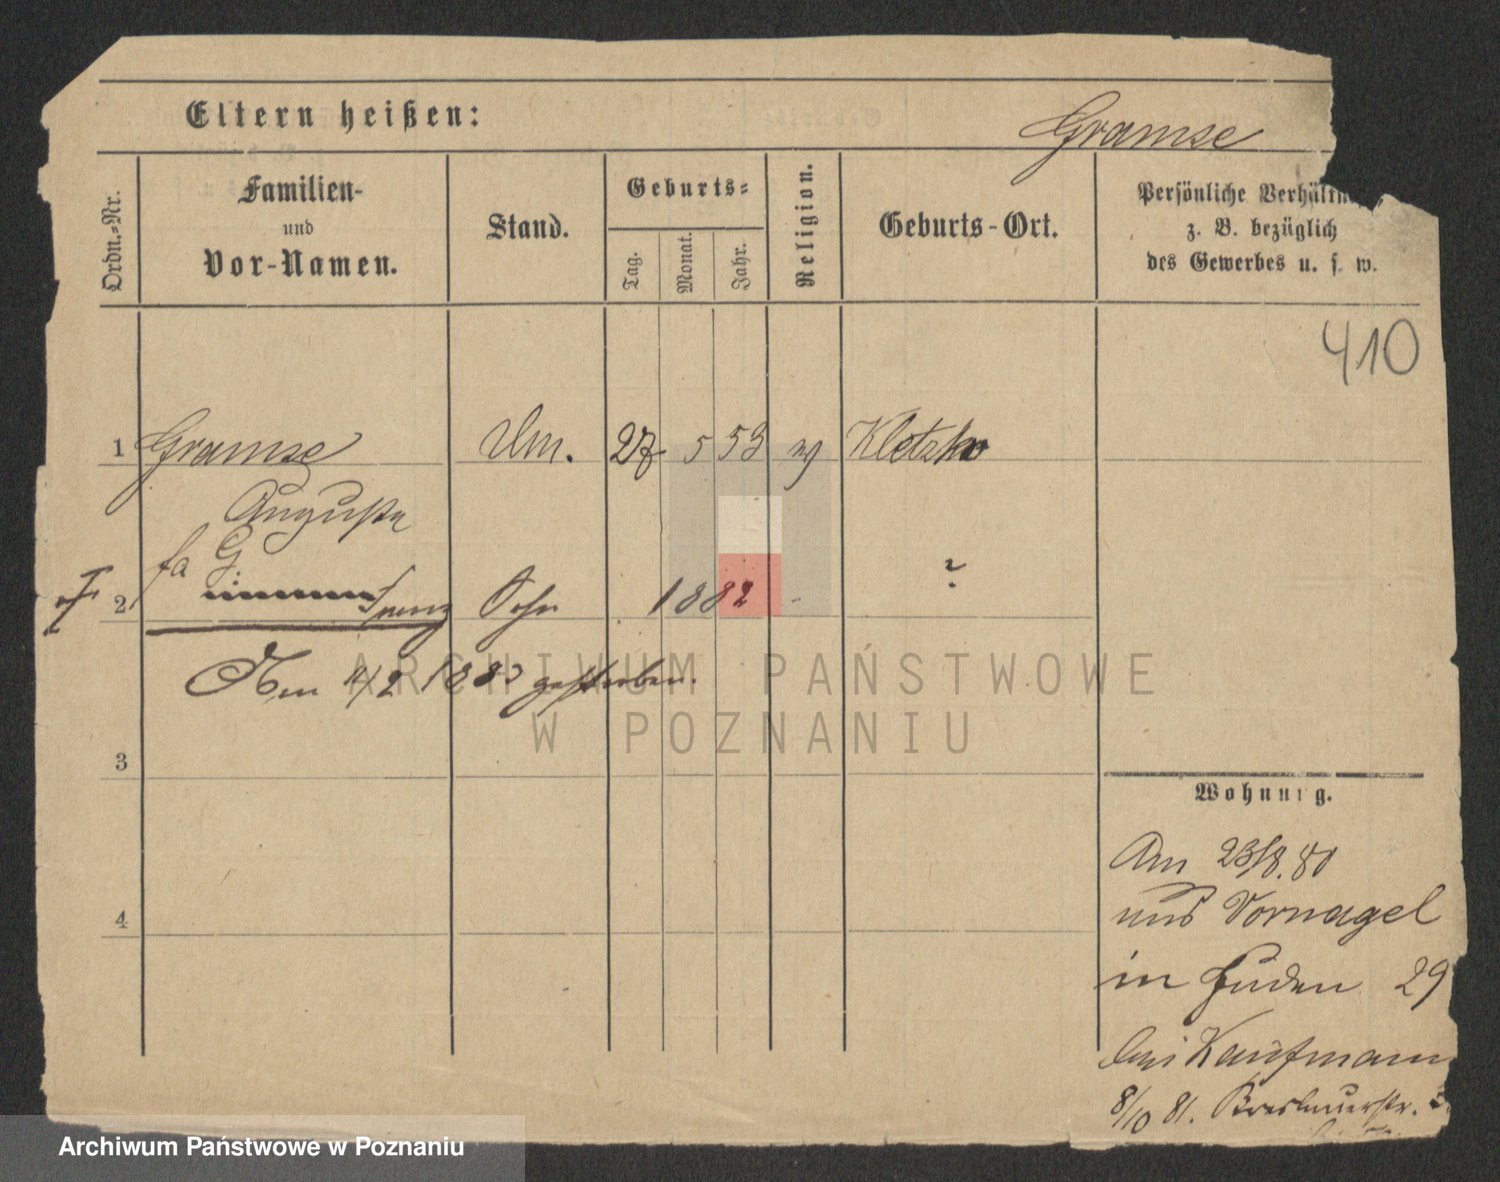 Eltern heißen:
Gramse
Ordn.=Nr.
Familien-
und
Vor-Namen.
Stand.
Geburts=
Tag.
Monat.
Jahr.
Religion.
Geburts-Ort.
Persönliche Verhältn
z. B. bezüglich
des Gewerbes u. s. w.
410
1 Gramse 5 53 Kletzko
Auguste
2 Sohn 1882 ?
gestorben.
3
Wohnung.
Am 23/8. 80
und Vornagel
4
in Juden 29
bei Kaufmann
8/10 81. Breslauerstr.
ARCHIWUM PAŃSTWOWE
W POZNANIU
Archiwum Państwowe w Poznaniu